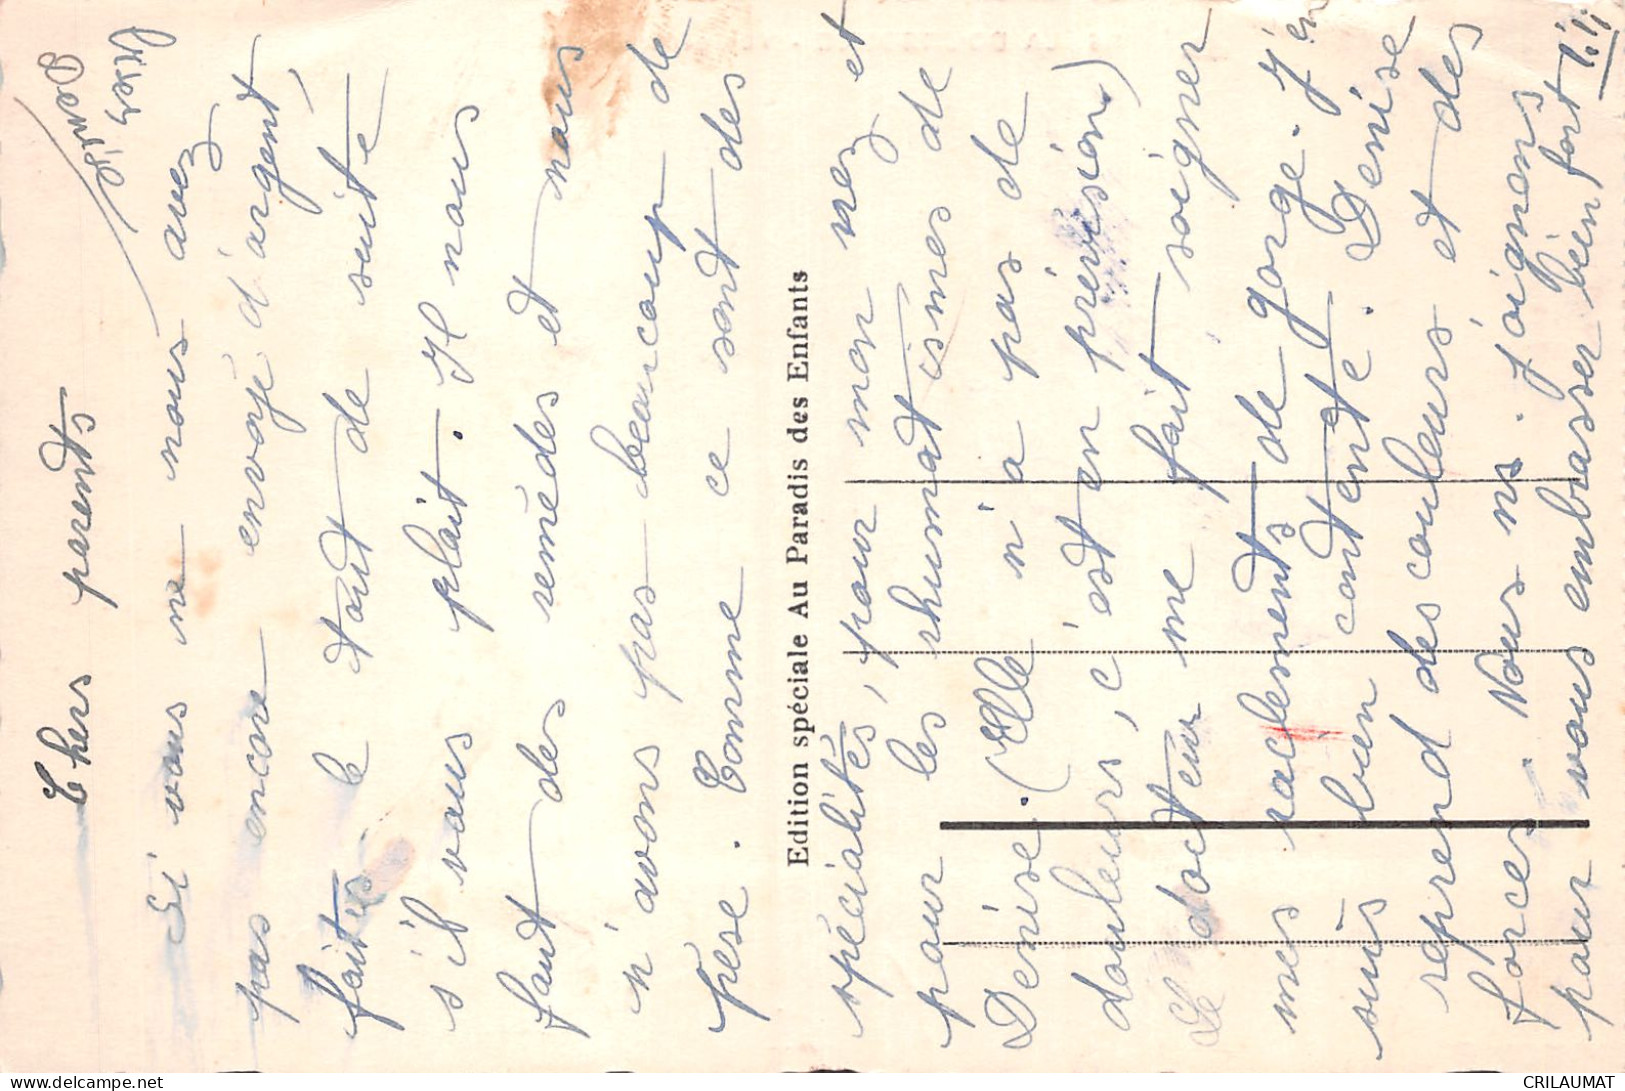 Chers parents
Si vous ne nous avez
pas encore envoyé d'argent,
faites le tout de suite
s'il vous plait. Il nous
faut des remèdes et nous
n'avons pas beaucoup de
pese. Comme ce sont des
Edition spéciale Au Paradis des Enfants
spécialités, pour mon nez et
pour les rhumatismes de
Denise. (Elle n'a pas de
douleurs, c'est en prévision.)
Le docteur me fait soigner
mes raclements de gorge. J'en
suis bien contente. Denise
reprend des couleurs et des
forces. Nous ns. joignons
pour vous embrasser bien fort
CRILAUMAT